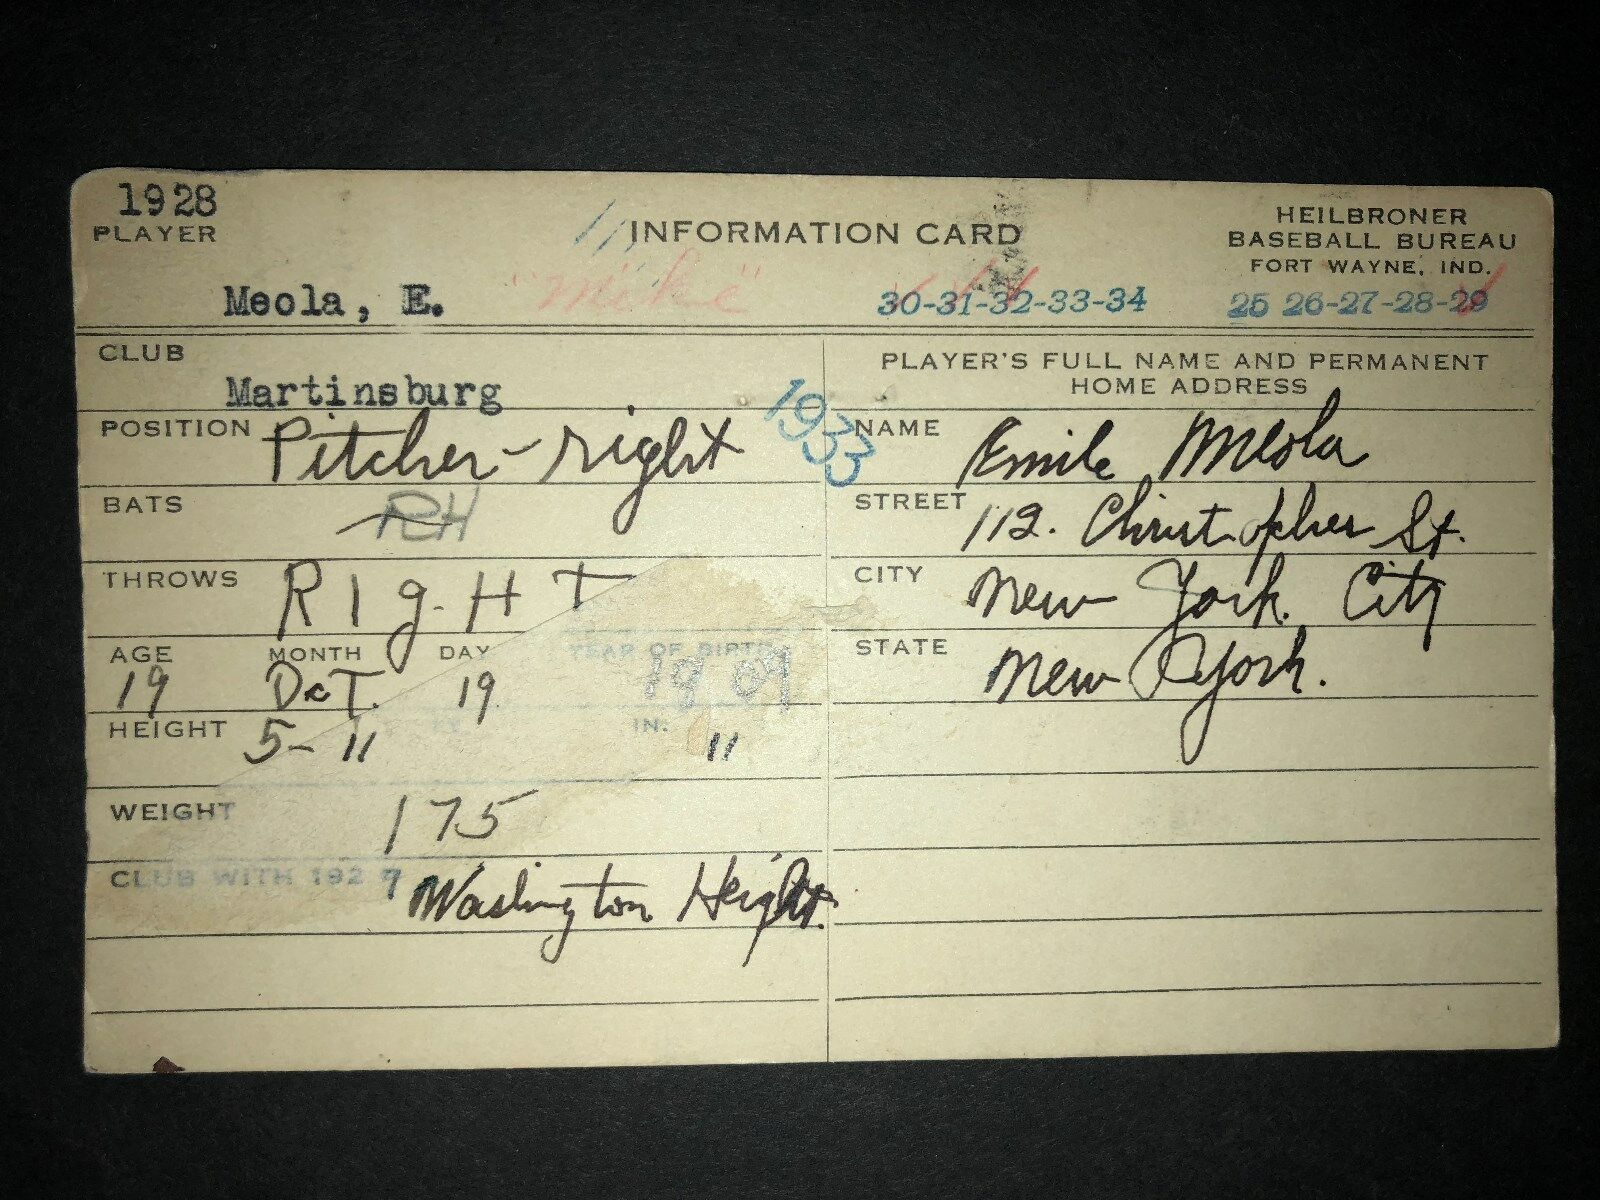 1928
PLAYER
INFORMATION CARD
HEILBRONER
BASEBALL BUREAU
FORT WAYNE, IND.
Meola, E.
"Mike"
30-31-32-33-34
25 26-27-28-29
CLUB
Martinsburg
1933
PLAYER'S FULL NAME AND PERMANENT
HOME ADDRESS
POSITION Pitcher - right
NAME Emile Meola
BATS RH
STREET 112. Christopher St.
THROWS RIgHT
CITY New York. City
AGE MONTH DAY YEAR OF BIRTH
19 OcT. 19 1909
STATE New York.
HEIGHT 5-11 FT. IN. 11
WEIGHT 175
CLUB WITH 1927 Washington Heights.